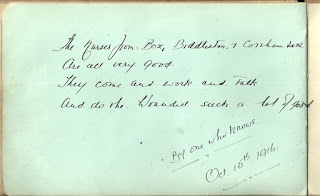 The Nurses from Box, Biddleston, & Corsham
Are all very good.
They come and work and talk
And do the Wounded such a lot of good
By one who knows
Oct 16th 1916.